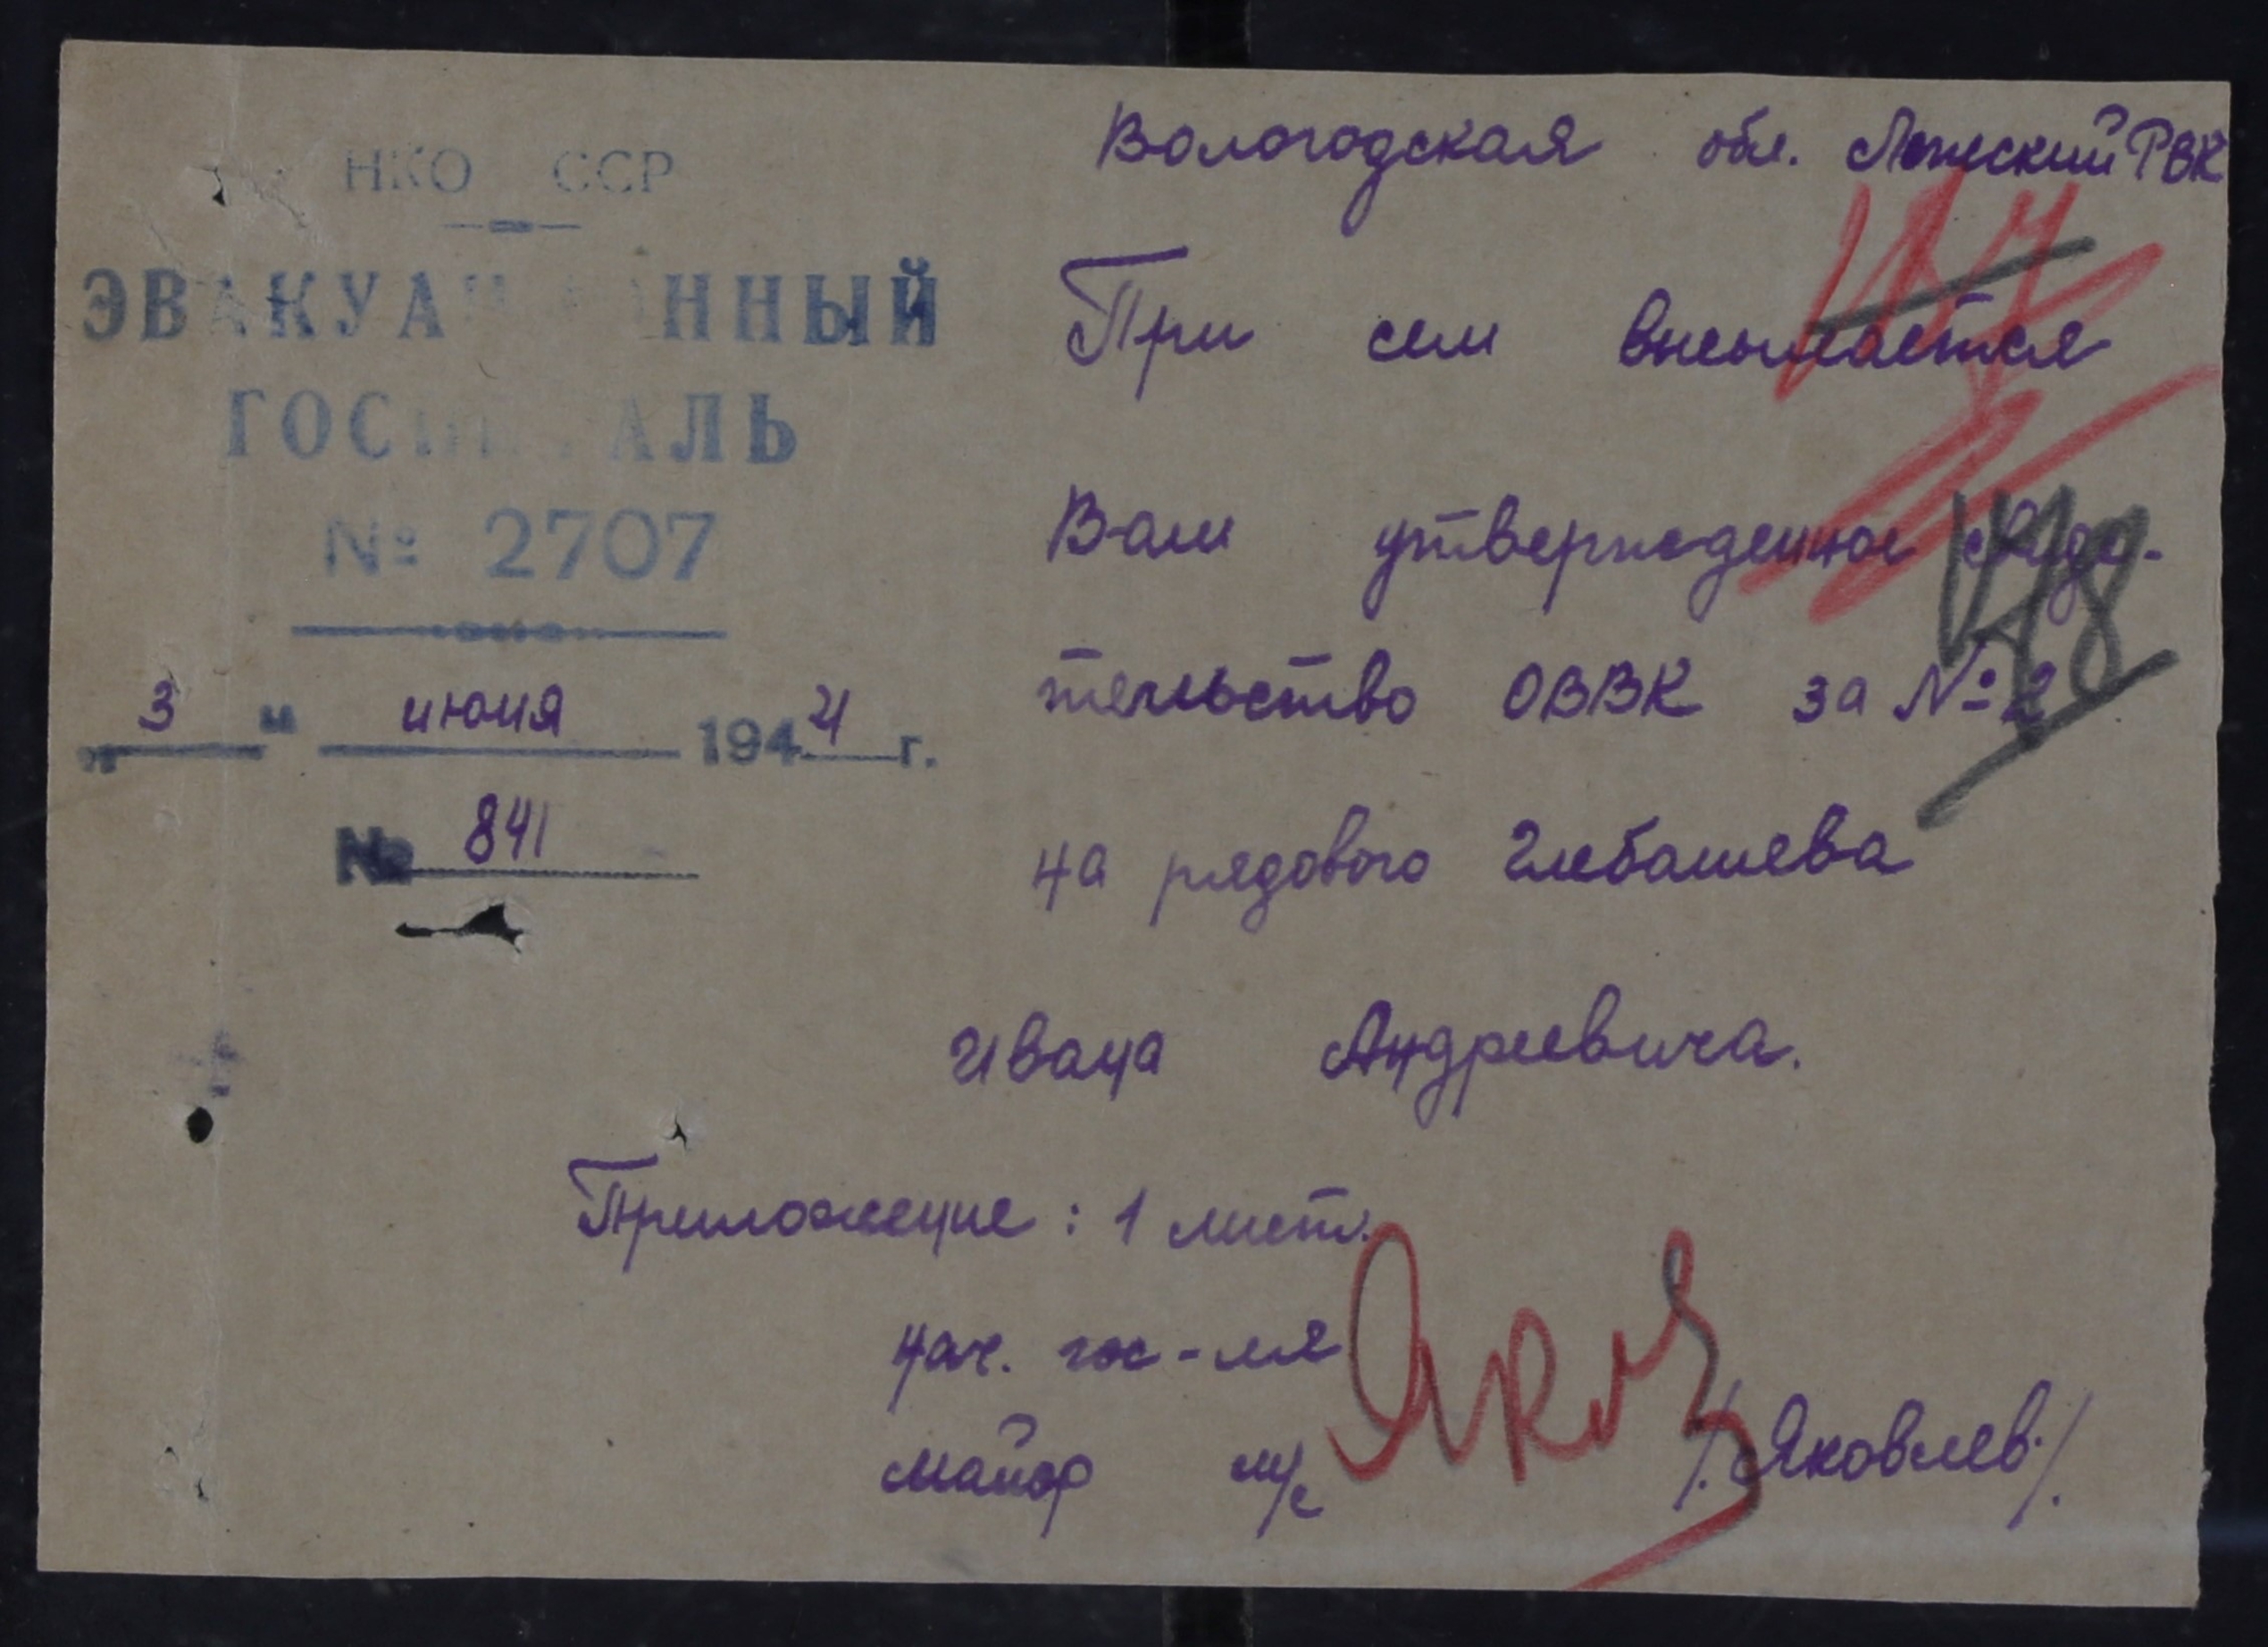 НКО ССР
ЭВАКУАЦИОННЫЙ
ГОСПИТАЛЬ
№ 2707
„ 3 " июня 1944 г.
№ 841
Вологодская обл. Лежский РВК
При сем высылается
Вам утвержденное свиде-
тельство ОВВК за № 2
на рядового Глебашева
Ивана Андреевича.
Приложение: 1 лист.
нач. гос-ля
майор м/с Яков /Яковлев/.
178